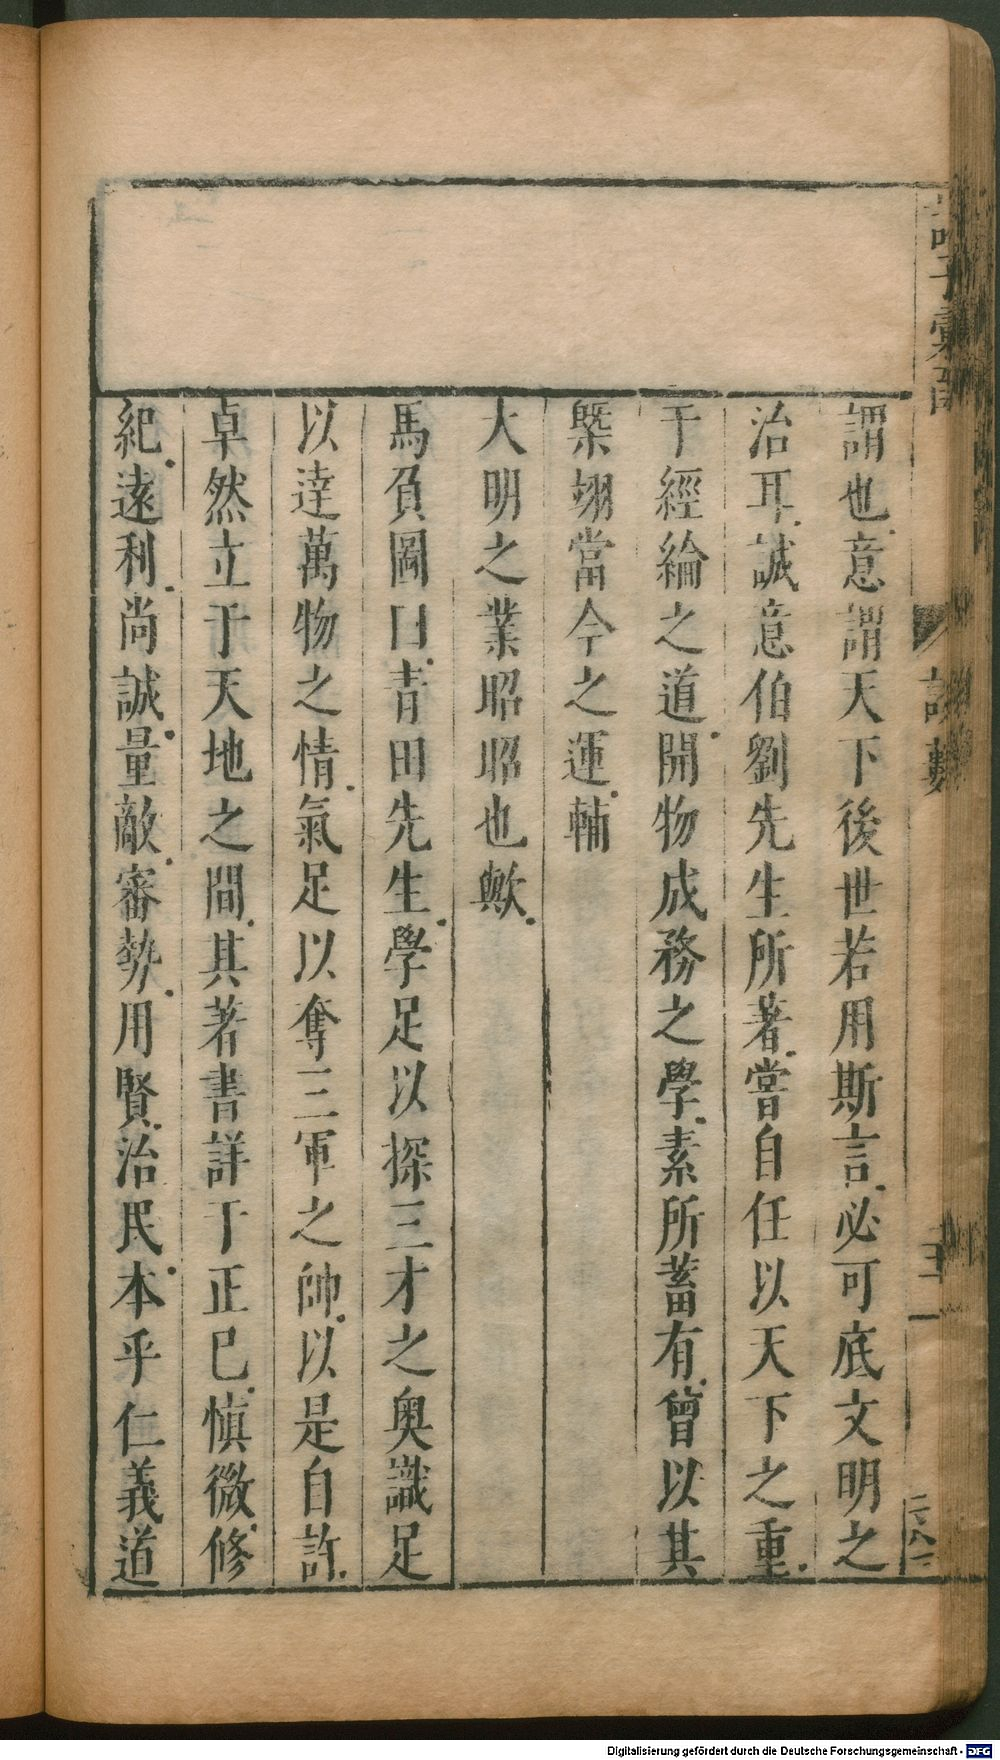 謂也意謂天下後世若用斯言必可底文明之
治耳誠意伯劉先生所著嘗自任以天下之重
于經綸之道開物成務之學素所蓄有曾以其
槩翊當今之運輔
大明之業昭昭也歟
馬負圖曰青田先生學足以探三才之奥識足
以達萬物之情氣足以奪三軍之帥以是自許
卓然立于天地之間其著書詳于正己慎微修
紀遠利尚誠量敵審勢用賢治民本乎仁義道
Digitalisierung gefördert durch die Deutsche Forschungsgemeinschaft - DFG